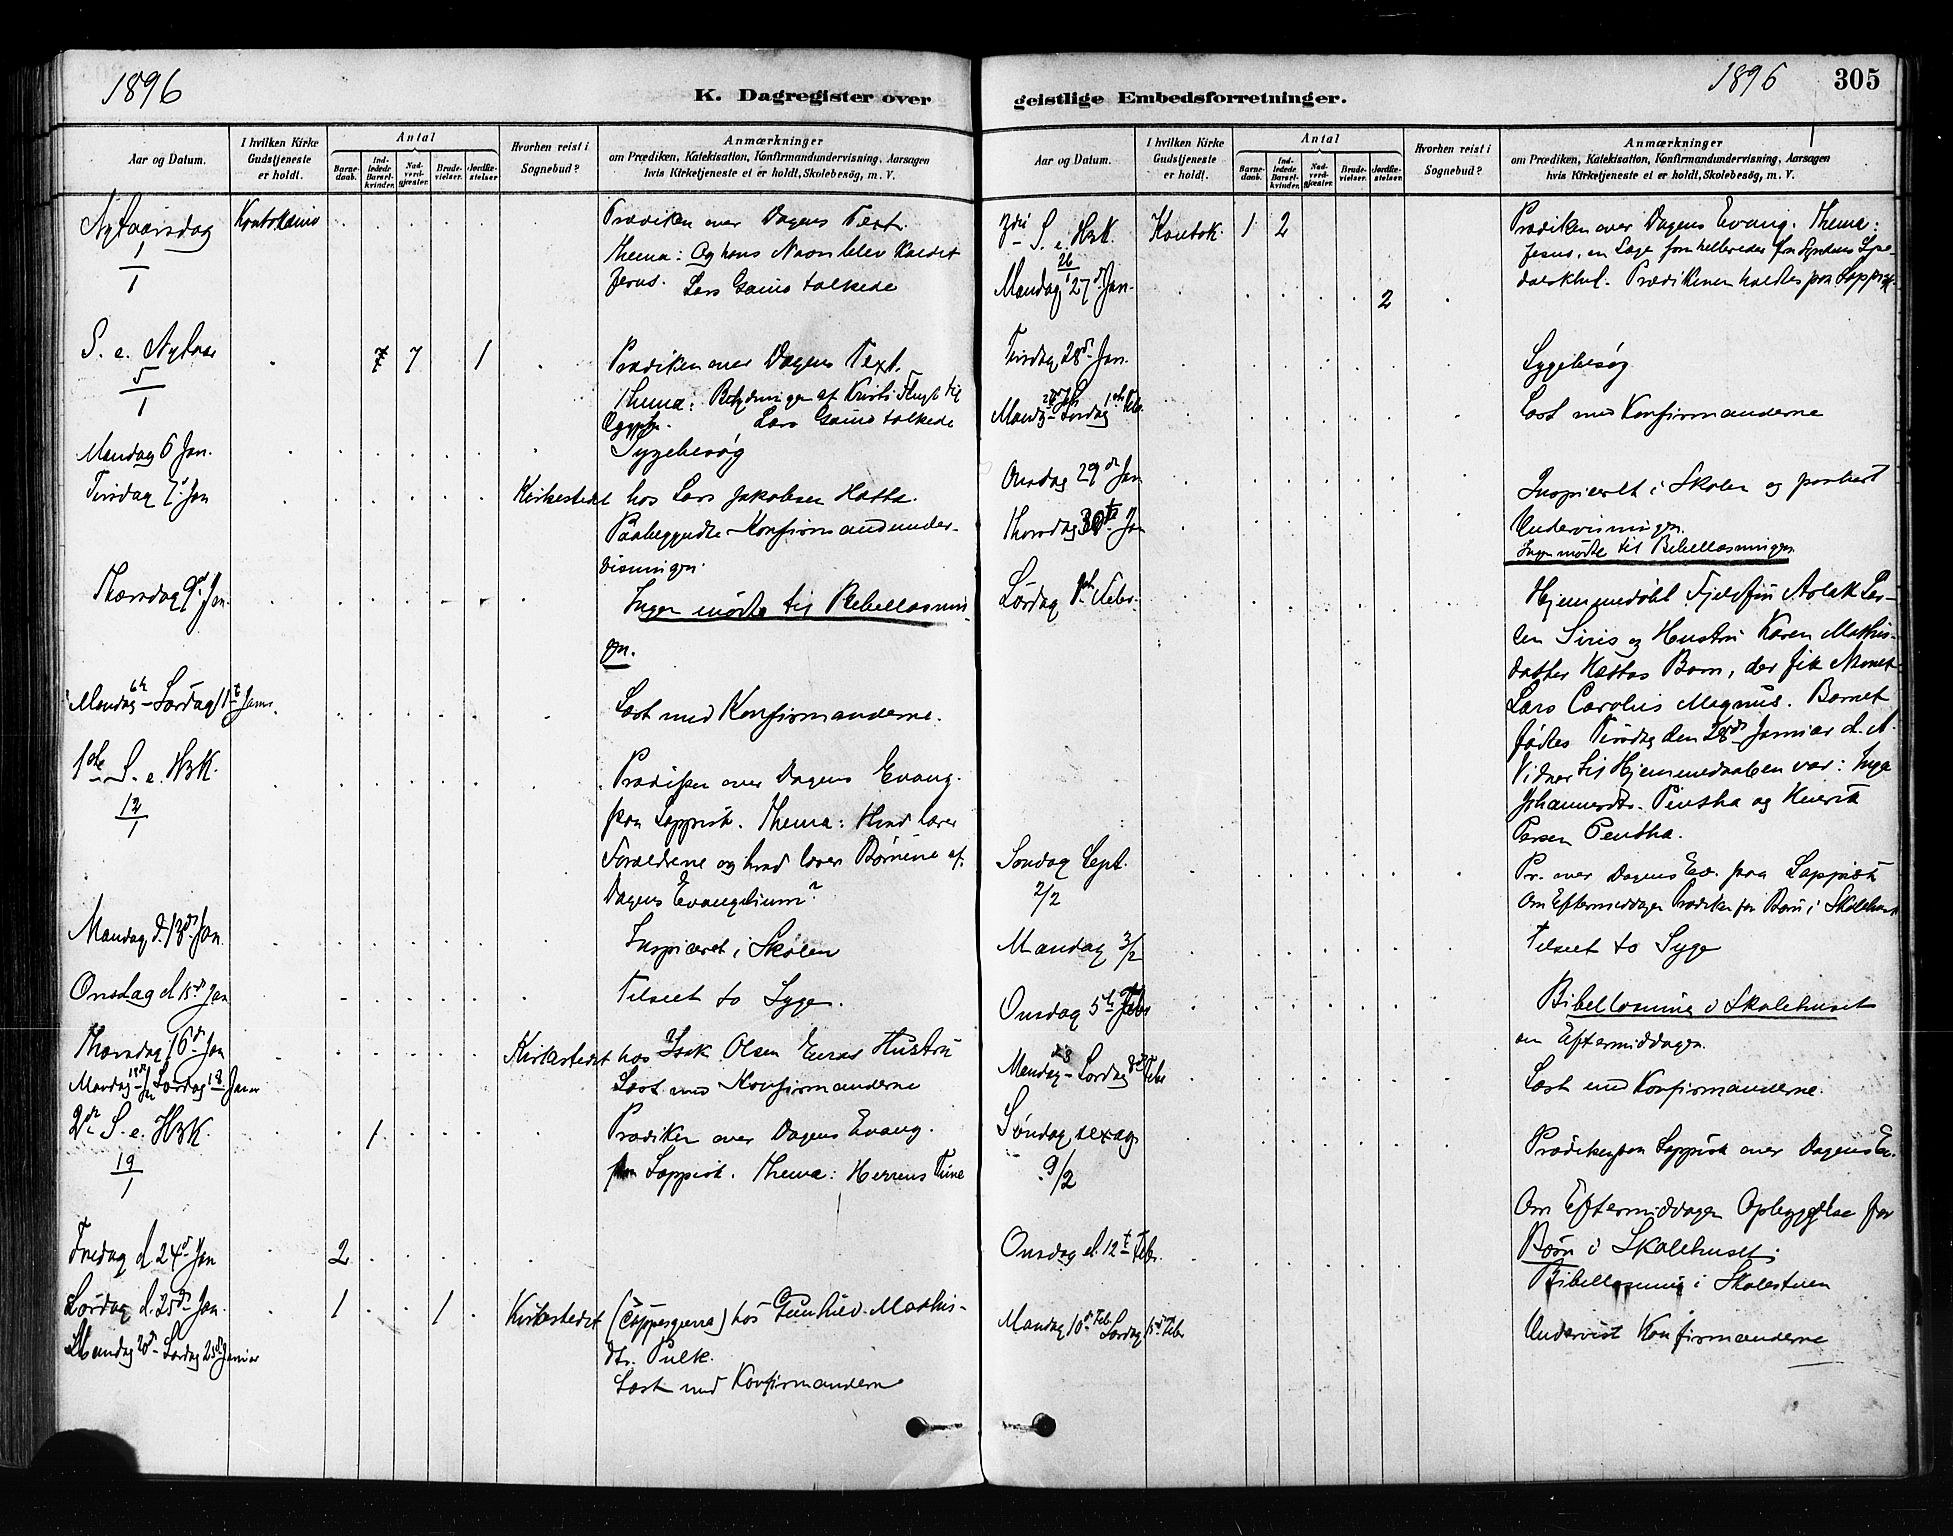 1896
K. Dagregister over
Aar og Datum.
I hvilken Kirke Gudstjeneste er holdt.
Antal
Barnedaab.
Indledede Barselkvinder.
Nadverdgjæster.
Brudevielser.
Jordfæstelser.
Hvorhen reist i Sognebud?
Anmærkninger
om Prædiken, Katekisation, Konfirmandundervisning, Aarsagen
hvis Kirketjeneste ei er holdt, Skolebesøg, m. V.
Nytaarsdag 1/1 Kautokeino Prædiken over Dagens Text.
Thema: Og hans Navn blev kaldet
Jesus. Lars Gaino tolkede
S. e. Nytaar 5/1 7 7 1 Prædiken over Dagens Text.
Thema: Betydningen af Kristi Flugt til
Lars Gaino tolkede
Mandag 6 Jan. Sygebesøg
Tirsdag 7. Jan Kirkestedet hos Lars Jakobsen Hætta.
Paabegyndte Konfirmandunder-
visningen.
Thorsdag 9d Jan. Ingen mødte til Bibellæsnin
gen.
Mandag 6te - Lørdag 11t Janr. Læst med Konfirmanderne.
1ste S. e. H3K. 12/1 Prædiken over Dagens Evang.
paa Lappisk. Thema: Hvad lærer
Forældrene og hvad lærer Børnene af
Dagens Evangelium?
Mandag d. 13d Jan. Inspiceret i Skolen
Onsdag d 15d Jan Tilseet to Syge.
Thorsdag 16d Jan Kirkestedet hos Isak Olsen Hustru
Mandag 13d - Lørdag 18 Janr Læst med Konfirmanderne
2den S. e. H3K. 19/1 1 Prædiken over Dagens Evang.
paa Lappisk. Thema: Herrens Time
Fredag d 24d Jan 2
Lørdag d. 25d Jan. 1 1 Kirkestedet (Cappesgierra) hos Gunhild Mathis-
dtr. Pulk.
Mandag 20d - Lørdag 25d Januar Læst med Konfirmanderne
1896 305
geistlige Embedsforretninger.
Aar og Datum.
I hvilken Kirke Gudstjeneste er holdt.
Antal
Barnedaab.
Indledede Barselkvinder.
Nadverdgjæster.
Brudevielser.
Jordfæstelser.
Hvorhen reist i Sognebud?
Anmærkninger
om Prædiken, Katekisation, Konfirmandundervisning, Aarsagen
hvis Kirketjeneste ei er holdt, Skolebesøg, m. V.
3die S. e. H3K. 26/1 Kautok 1 2 Prædiken over Dagens Evang. Thema:
Jesus, en Læge som helbreder fra Syndens Spe-
dalskhed. Prædikenen holdtes paa Lappisk.
Mandag 27d Jan. 2
Tirsdag 28d Jan. Sygebesøg
Mandag - Lørdag 1ste Febr. Læst med Konfirmanderne
Onsdag 29de Jan Inspiceret i Skolen og
Undervisningen.
Thorsdag 30te Jan Ingen mødte til Bibellæsningen
Lørdag 1ste Febr. Hjemmedøbt Fjeldfin Aslak Per-
sen Siris og Hustru Karen Mathis-
datter Hættas Barn, der fik Navnet
Lars Carolus Magnus. Barnet
fødtes Tirsdag den 28d Januar d. A.
Vidner til Hjemmedaaben var: Inga
Johannesdtr. Pentha og Henrik
Persen Pentha.
Søndag Sept. 2/2 Pr. over Dagens Ev. paa Lappisk
Om Eftermiddagen Prædiken for Børn i Skolehuset
Mandag 3/2 Tilseet to Syge
Onsdag 5te Febr Bibellæsning i Skolehuset
om Eftermiddagen.
Mandag - Lørdag 8d Febr Læst med Konfirmanderne.
Søndag sexag. 9/2 Prædiken paa Lappisk over Dagens Ev.
Om Eftermiddagen Opbyggelse for
Børn i Skolehuset.
Onsdag d. 12t Febr. Bibellæsning i Skolestuen
Mandag 10d Febr Lørdag 15d Febr Undervist Konfirmanderne